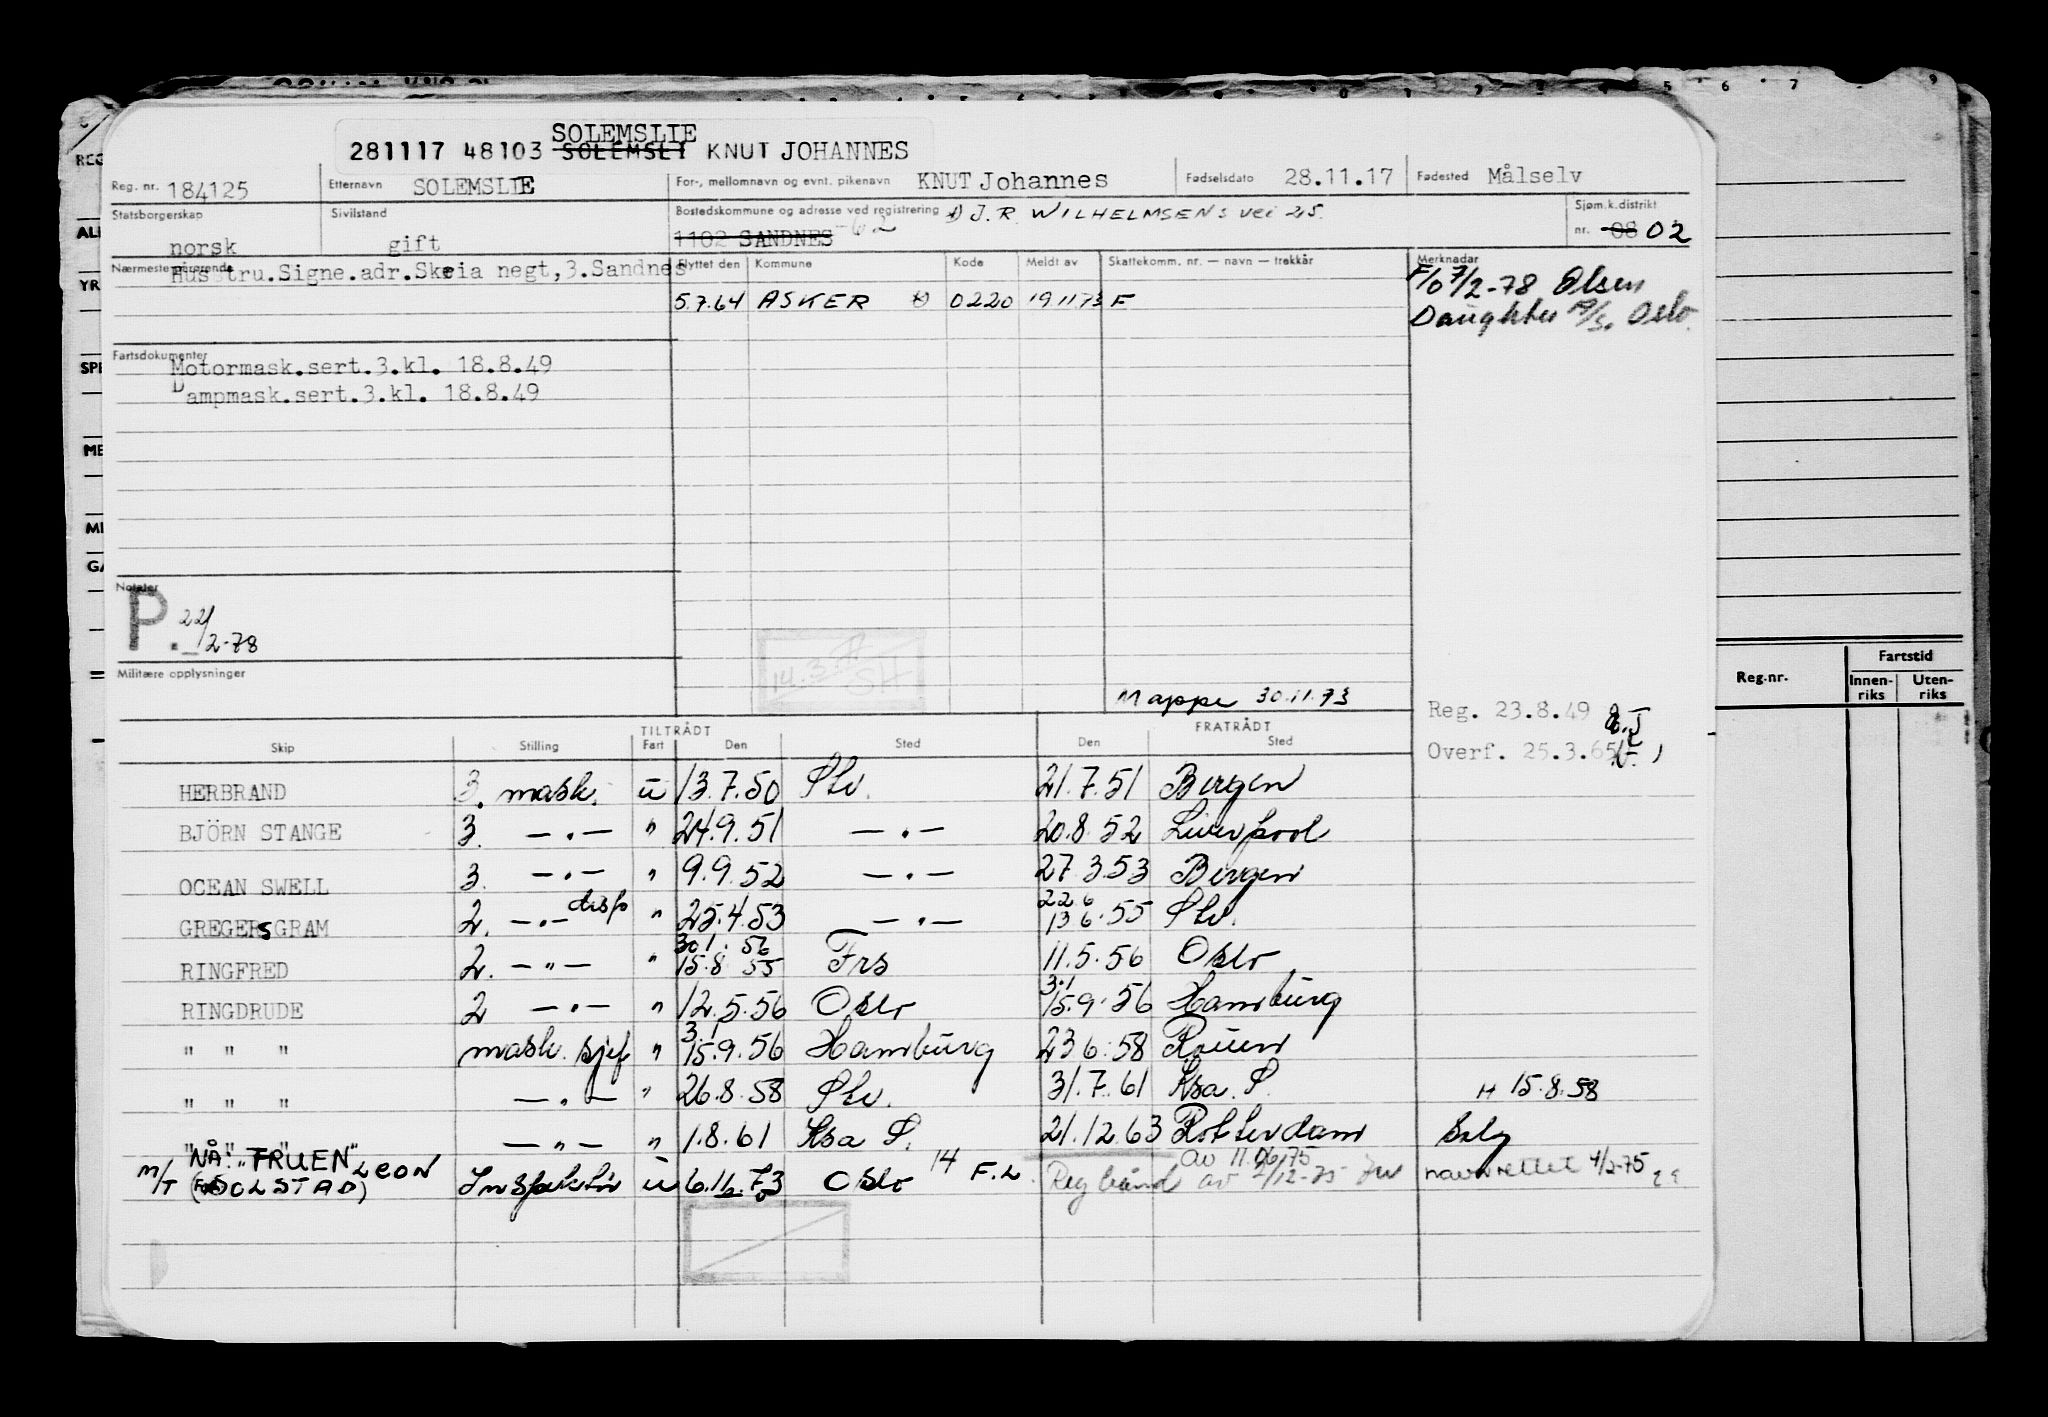 SOLEMSLIE
281117 48103 SOLEMSLI KNUT JOHANNES
Reg. nr. 184125 Etternavn SOLEMSLIE For-, mellomnavn og evnt. pikenavn KNUT Johannes Fødselsdato 28.11.17 Fødested Målselv
Statsborgerskap norsk Sivilstand gift Bostedskommune og adresse ved registrering J. R. WILHELMSENS vei 25.
1102 SANDNES Sjøm.k.distrikt nr. 08 02
Nærmeste pårørende Hustru.Signe.adr.Skeia negt,3.Sandnes
Flyttet den Kommune Kode Meldt av Skattekomm. nr. — navn — trekkår Merknader
5.7.64 ASKER 0220 191173 F
F/o 7/2-78 Olsen
Daughter Oslo.
Fartsdokumenter
Motormask.sert.3.kl. 18.8.49
Dampmask.sert.3.kl. 18.8.49
Notater
P. 22/2-78
Militære opplysninger
Mappe 30.11.73
Reg. 23.8.49
Overf. 25.3.65
TILTRÅDT FRATRÅDT
Skip Stilling Fart Den Sted Den Sted
HERBRAND 3. mask. u 13.7.50 Stv. 21.7.51 Bergen
BJÖRN STANGE 3. — . — " 24.9.51 — . — 20.8.52 Liverpool
OCEAN SWELL 3. — . — " 9.9.52 — . — 27.3.53 Bergen
GREGERS GRAM 2. — . — disp " 25.4.53 — . — 22 6 13 6.55 Stv.
RINGFRED 2. — " — " 30.1.56 15.8 55 Frs 11.5.56 Oslo
RINGDRUDE 2 — . — " 12.5.56 Oslo 3.1 15.9.56 Hamburg
" " " mask. sjef " 3.1 15.9.56 Hamburg 23 6.58 Rouen
" " " — . — " 26.8.58 Stv. 31.7.61 Ksa. S. H 15.8.58
" " " — " — " 1.8.61 Ksa S. 21.12.63 Rotterdam Salg
NÅ: "FRUEN" LEON
M/T (EX SOLSTAD) Inspektør u 6.11.73 Oslo 14 F.L. Reg bånd av 11.06.75
av 2/12-75 navn rettet 4/2-75
Reg.nr. Fartstid
Innen-riks Uten-riks